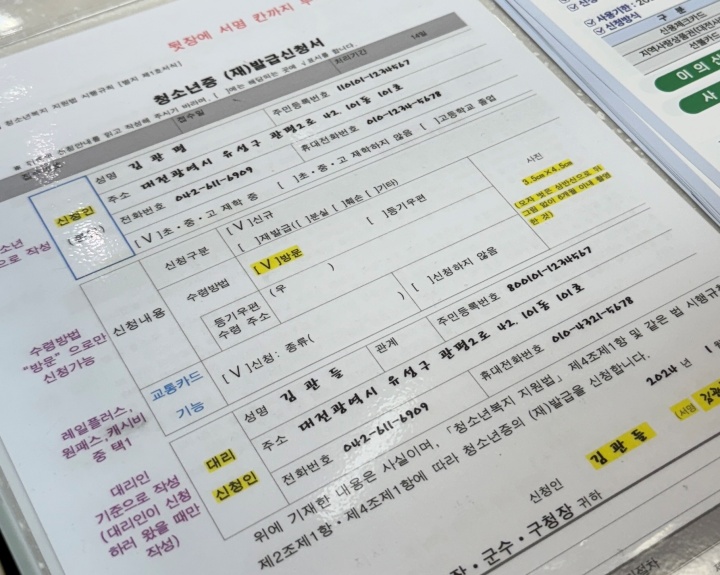 뒷장에 서명 칸까지
청소년복지 지원법 시행규칙 [별지 제1호서식]
청소년증 (재)발급신청서
접수일
처리기간
14일
성명 김관평
주민등록번호 110101-1234567
주소 대전광역시 유성구 관평2로 42, 101동 101호
전화번호 042-611-6909
휴대전화번호 010-1234-5678
[V]초·중·고 재학 중 [ ]초·중·고 재학하지 않음 [ ]고등학교 졸업
신청인
작성
사진
3.5㎝×4.5㎝
(모자 벗은 상반신으로 뒤
그림 없이 6개월 이내 촬영
한 것)
신청내용
신청구분
[V]신규
[ ]재발급([ ]분실 [ ]훼손 [ ]기타)
수령방법
[V]방문
[ ]등기우편
등기우편
수령 주소
(우 )
수령방법
“방문”으로만
신청가능
교통카드
기능
[V]신청: 종류( )
[ ]신청하지 않음
레일플러스,
원패스, 캐시비
중 택1
대리
신청인
성명 김관돌
관계
주민등록번호 800101-1234567
주소 대전광역시 유성구 관평2로 42, 101동 101호
전화번호 042-611-6909
휴대전화번호 010-4321-5678
대리인
기준으로 작성
(대리인이 신청
하러 왔을 때만
작성)
위에 기재한 내용은 사실이며, 「청소년복지 지원법」 제4조제1항 및 같은 법 시행규칙
제2조제1항·제4조제1항에 따라 청소년증의 (재)발급을 신청합니다.
2024 년
신청인
김관돌
(서명
군수·구청장 귀하
사용기한:
신청방식
구 분
신용체크카드
지역사랑상품권
선불카드
이의신
사